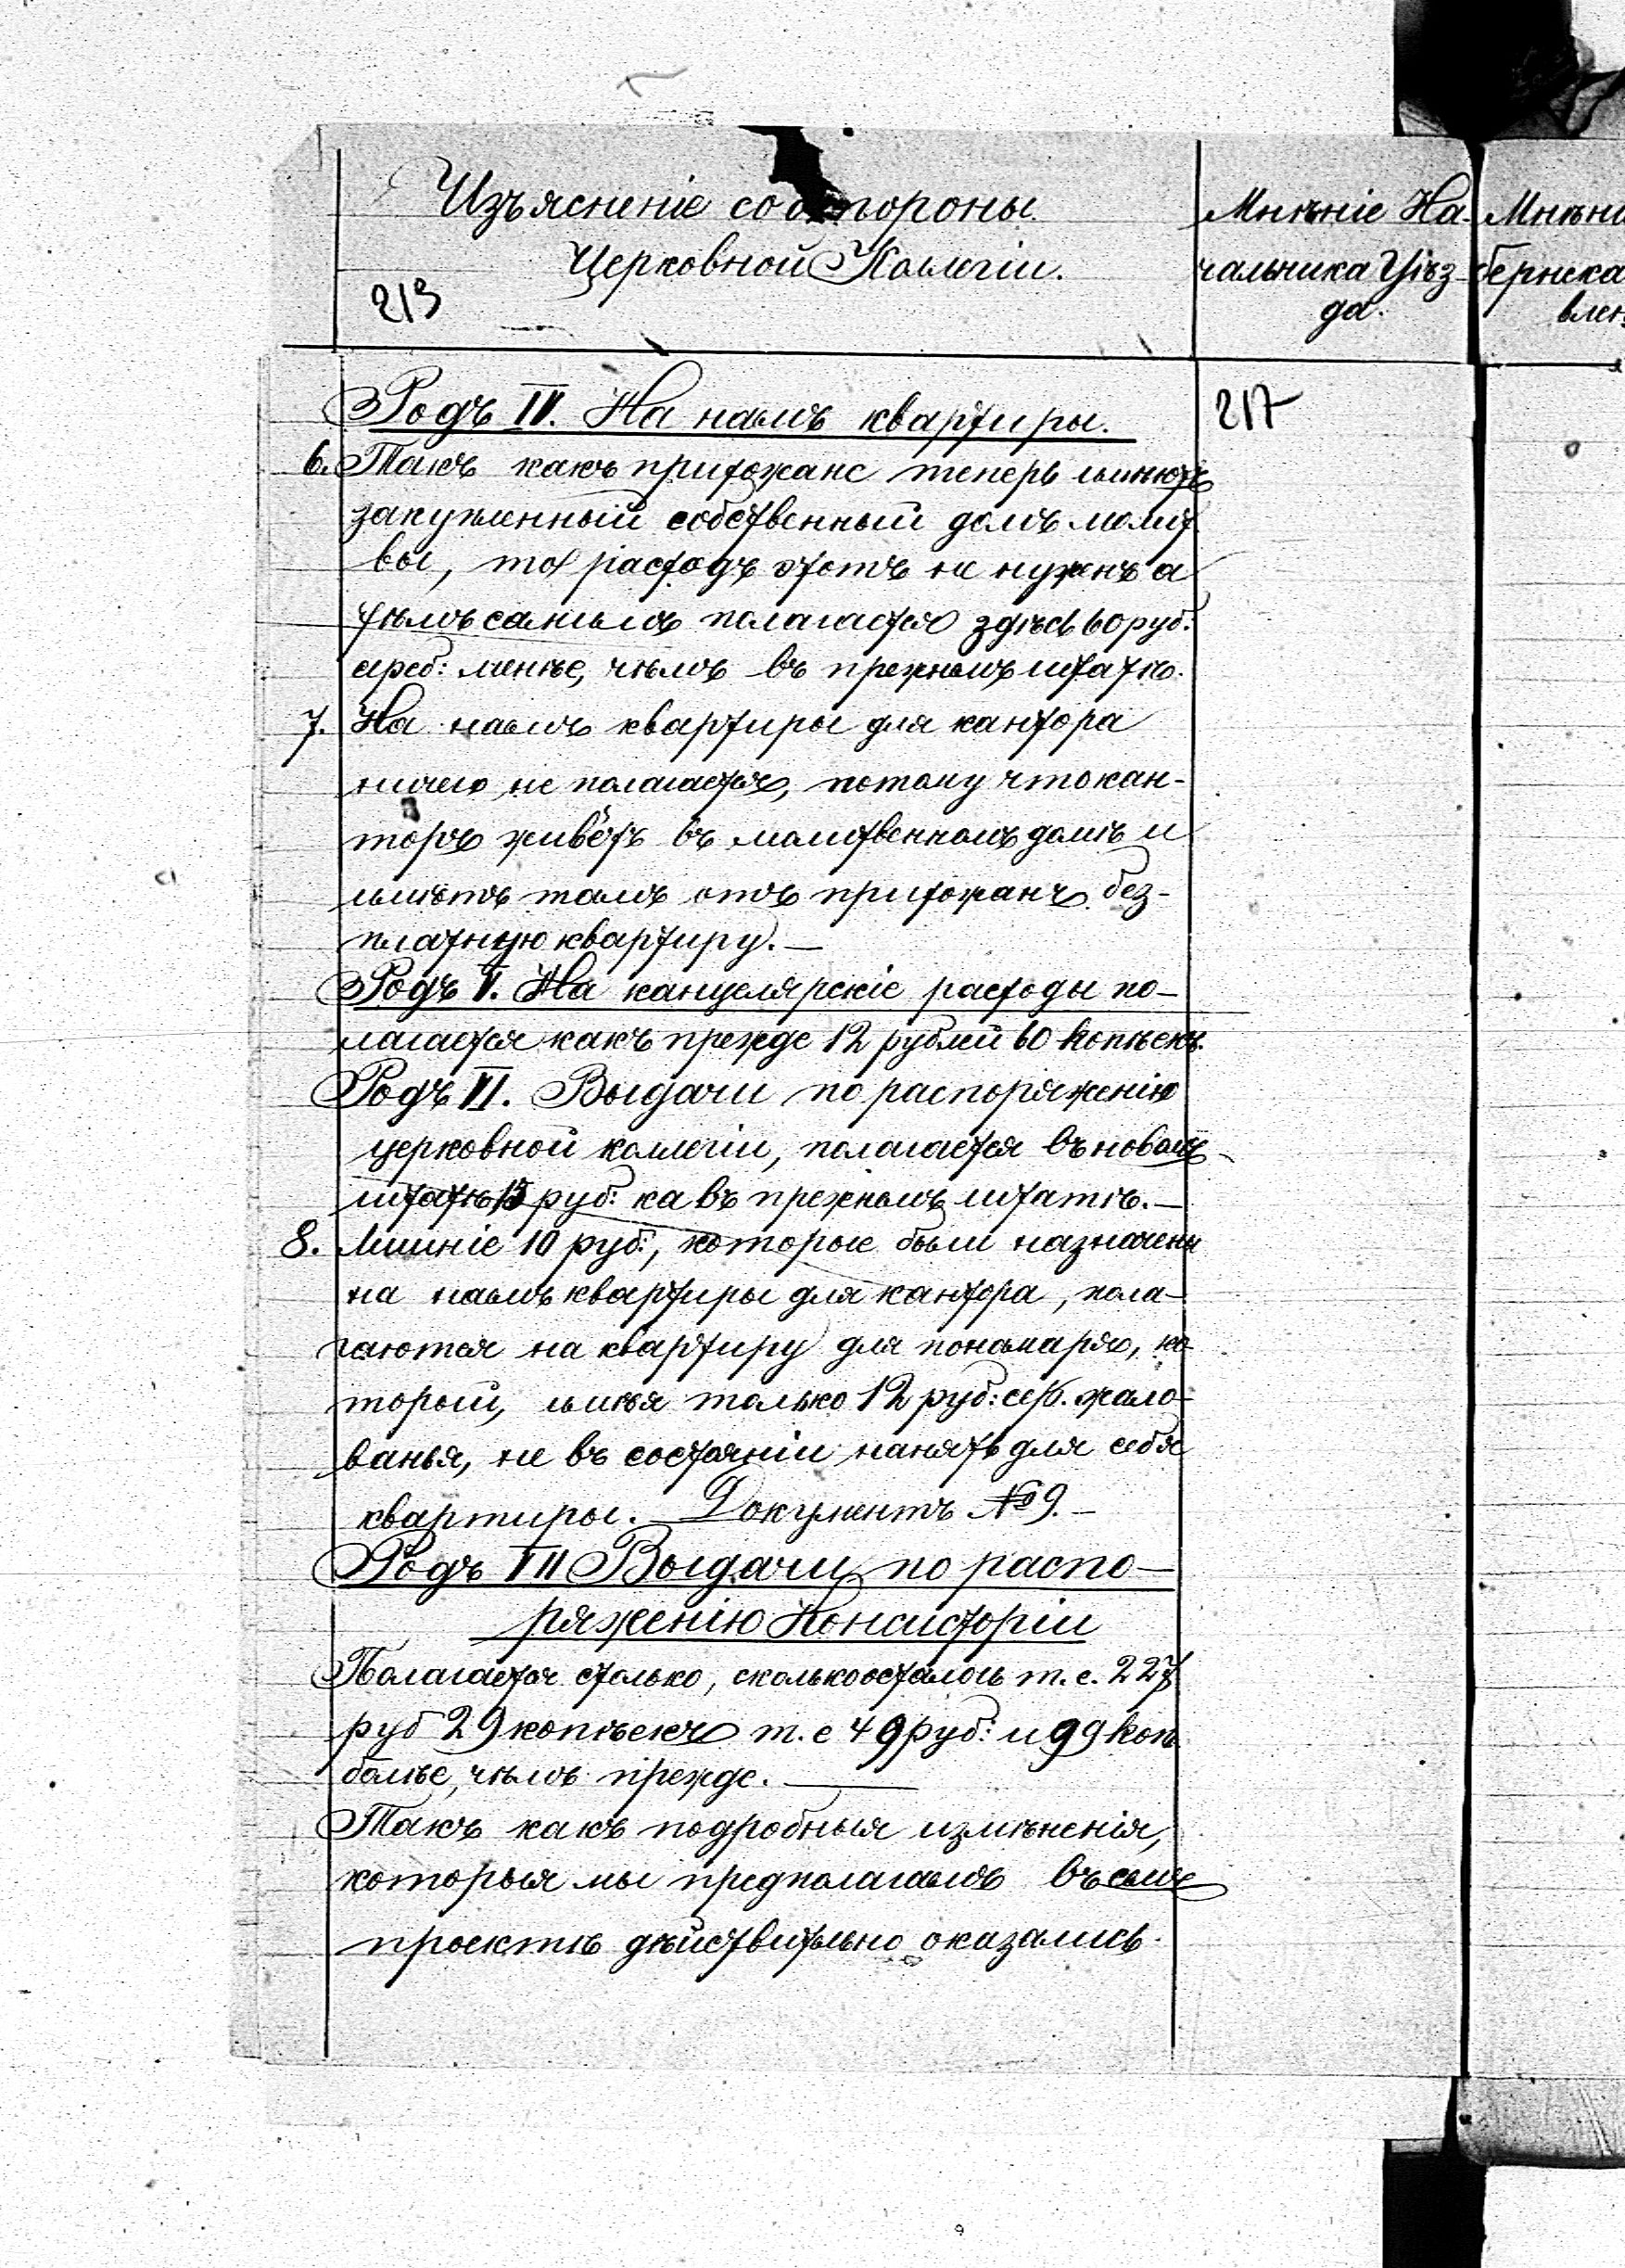 Изъясненіе со стороны
Церковной Коллегіи.
213
Мнѣніе На-
чальника Уѣз-
да.
Мнѣні
берпска
влен
217
Родъ IV. На наемъ квартиры.
6. Такъ какъ прихожане теперь имѣютъ
закупленный собственный домъ молит
вы, то расходъ этотъ не нуженъ а
тѣмъ самымъ полагается здѣсь 60 руб:
сереб: менѣе, чѣмъ въ прежнемъ штатѣ.
7. На наемъ квартиры для кантора
ничего не полагается, потому что кан-
торъ живётъ въ молитвенномъ домѣ и
имѣетъ тамъ отъ прихожанъ без-
платную квартиру.—
Родъ V. На канцелярскіе расходы по-
лагается какъ прежде 12 рублей 60 копѣекъ.
Родъ VI. Выдачи по распоряженію
церковной коллегіи, полагается въ новомъ
штатѣ 15 руб: ка въ прежнемъ штатѣ.—
8. Лишніе 10 руб:, которые были назначены
на наемъ квартиры для кантора, пола-
гаются на квартиру для пономаря, ко-
торый, имѣя только 12 руб: сер. жало-
ванья, не въ состояніи нанять для себя
квартиры. — Документъ № 9.—
Родъ VII Выдачи по распо-
ряженію Консисторіи
Полагается столько, сколько осталось т. е. 227
руб 29 копѣекъ т. е 49 руб: и 99 коп
болѣе, чѣмъ прежде. —
Такъ какъ подробныя измѣненія,
которыя мы предполагаемъ въ семъ
проектѣ дѣйствительно оказались